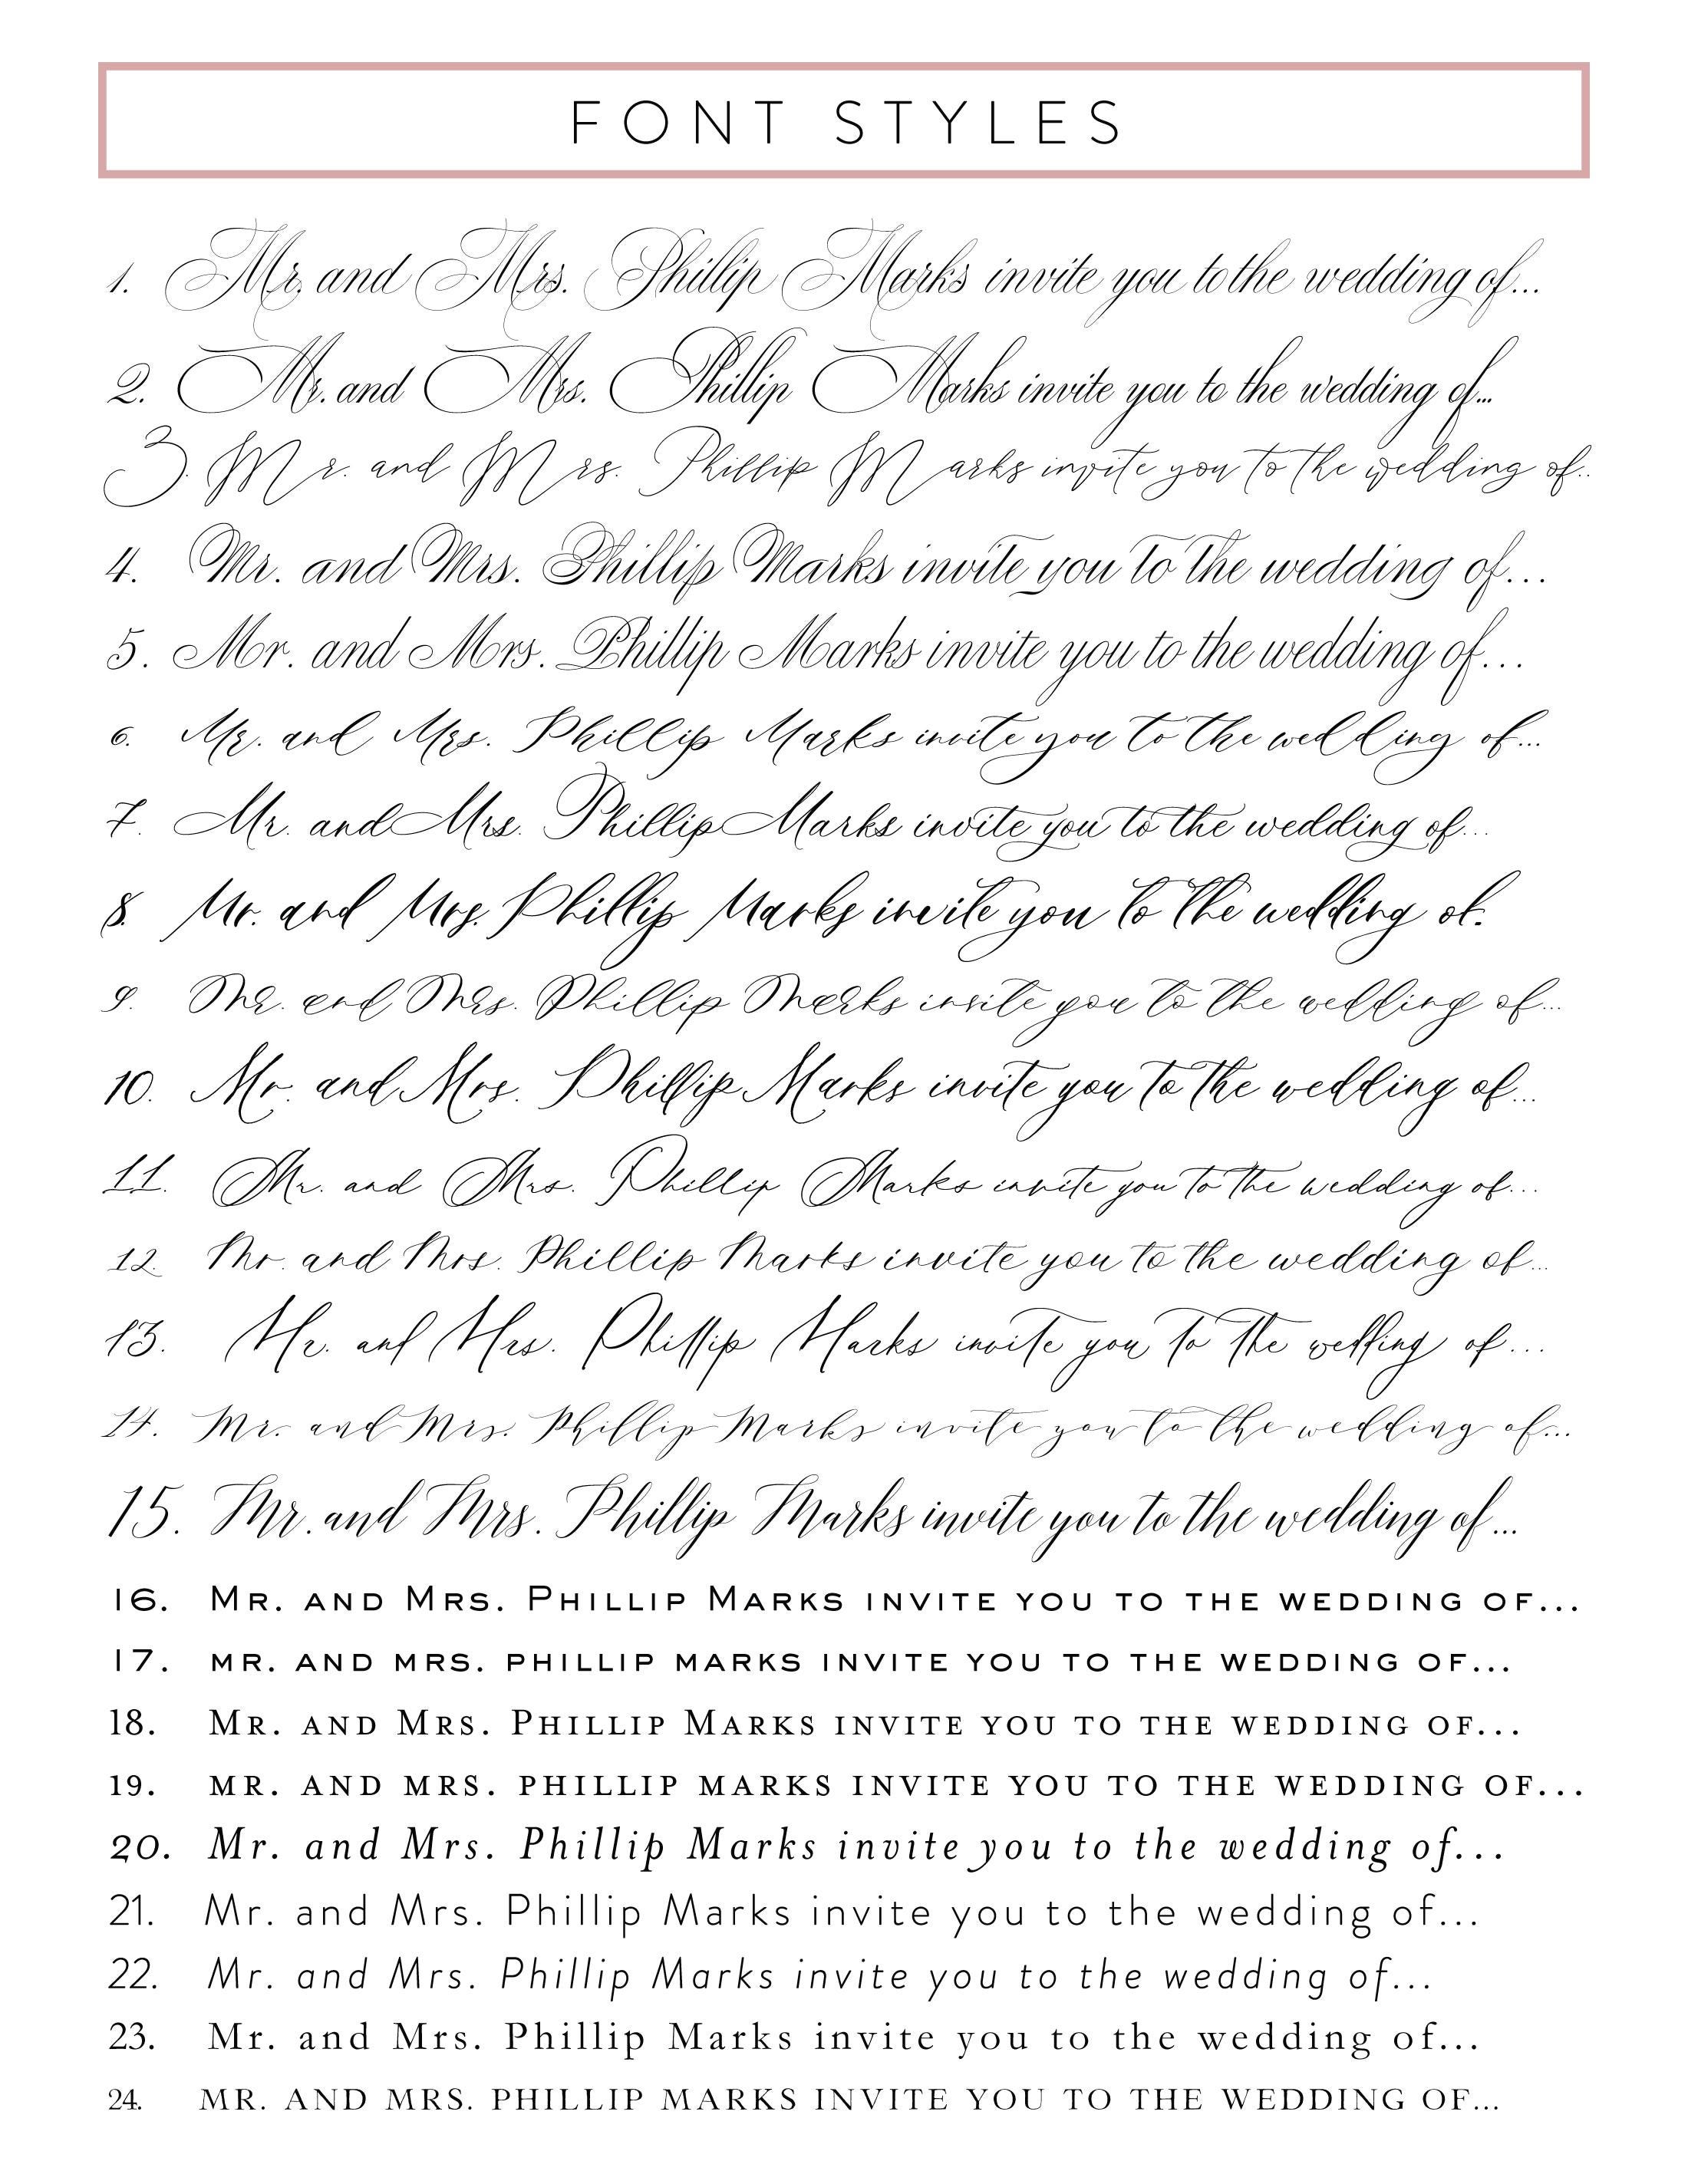 FONT STYLES
1. Mr. and Mrs. Phillip Marks invite you to the wedding of...
2. Mr. and Mrs. Phillip Marks invite you to the wedding of...
3. Mr. and Mrs. Phillip Marks invite you to the wedding of..
4. Mr. and Mrs. Phillip Marks invite you to the wedding of...
5. Mr. and Mrs. Phillip Marks invite you to the wedding of...
6. Mr. and Mrs. Phillip Marks invite you to the wedding of...
7. Mr. and Mrs. Phillip Marks invite you to the wedding of...
8. Mr. and Mrs. Phillip Marks invite you to the wedding of.
9. Mr. and Mrs. Phillip Marks invite you to the wedding of...
10. Mr. and Mrs. Phillip Marks invite you to the wedding of...
11. Mr. and Mrs. Phillip Marks invite you to the wedding of...
12. Mr. and Mrs. Phillip Marks invite you to the wedding of...
13. Mr. and Mrs. Phillip Marks invite you to the wedding of...
14. Mr. and Mrs. Phillip Marks invite you to the wedding of...
15. Mr. and Mrs. Phillip Marks invite you to the wedding of...
16. MR. AND MRS. PHILLIP MARKS INVITE YOU TO THE WEDDING OF...
17. MR. AND MRS. PHILLIP MARKS INVITE YOU TO THE WEDDING OF...
18. MR. AND MRS. PHILLIP MARKS INVITE YOU TO THE WEDDING OF...
19. MR. AND MRS. PHILLIP MARKS INVITE YOU TO THE WEDDING OF...
20. Mr. and Mrs. Phillip Marks invite you to the wedding of...
21. Mr. and Mrs. Phillip Marks invite you to the wedding of...
22. Mr. and Mrs. Phillip Marks invite you to the wedding of...
23. Mr. and Mrs. Phillip Marks invite you to the wedding of...
24. MR. AND MRS. PHILLIP MARKS INVITE YOU TO THE WEDDING OF...